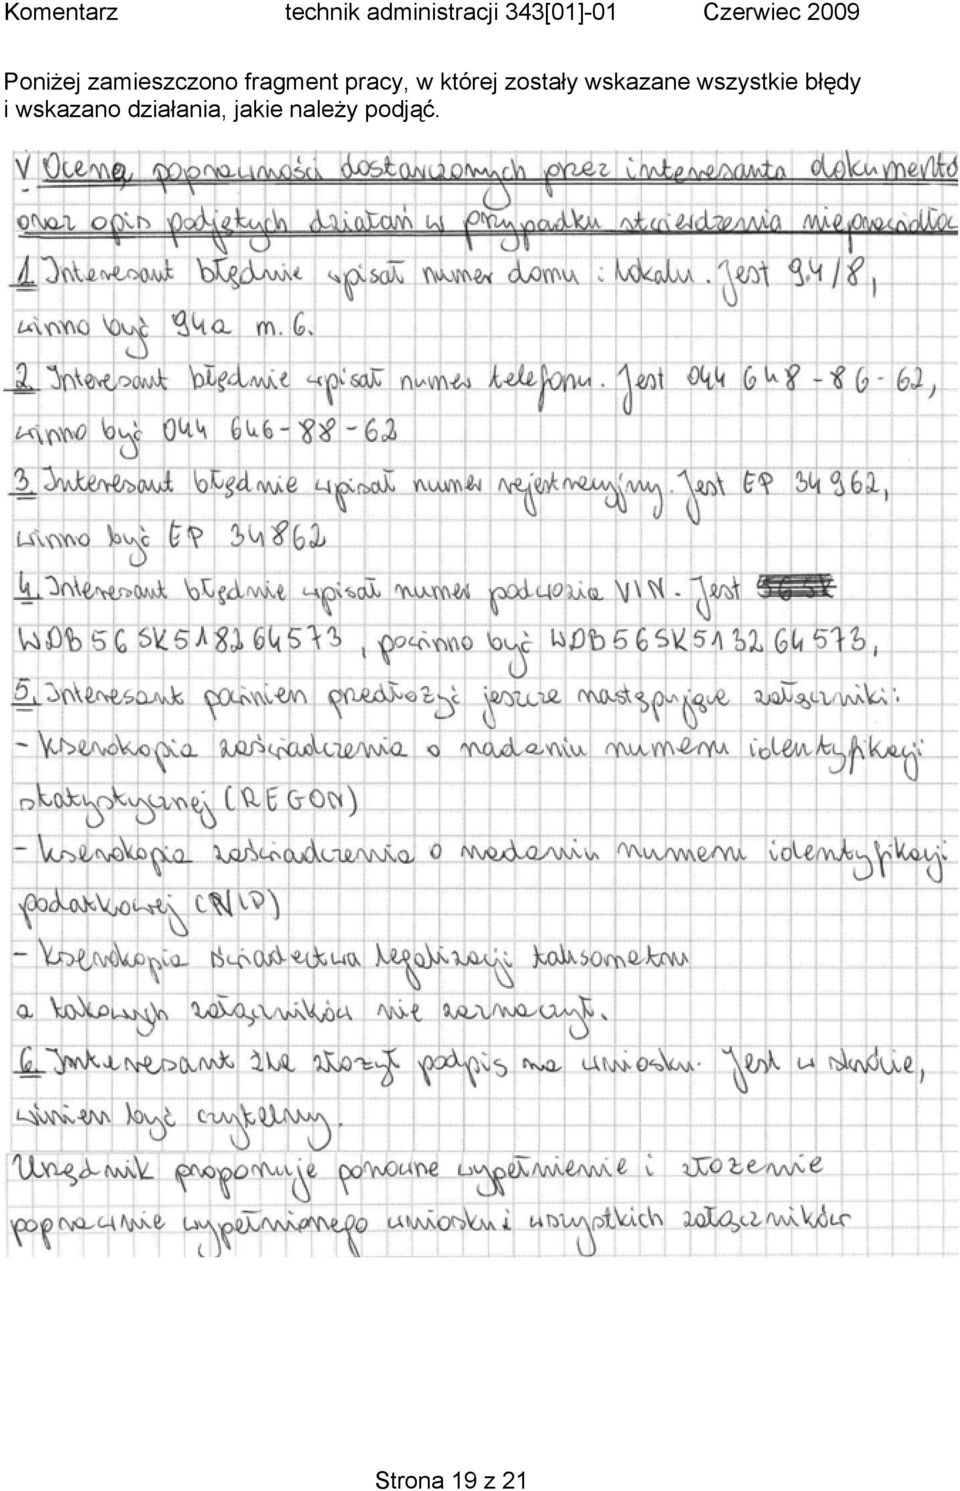 Komentarz technik administracji 343[01]-01 Czerwiec 2009
Poniżej zamieszczono fragment pracy, w której zostały wskazane wszystkie błędy
i wskazano działania, jakie należy podjąć.
V Ocena poprawności dostarczonych przez interesanta dokumentó
oraz opis podjętych działań w przypadku stwierdzenia nieprawidło
1. Interesant błędnie wpisał numer domu i lokalu. Jest 94/8,
winno być 94a m. 6.
2. Interesant błędnie wpisał numer telefonu. Jest 044 648-86-62,
winno być 044 646-88-62
3. Interesant błędnie wpisał numer rejestracyjny. Jest EP 34962,
winno być EP 34862
4. Interesant błędnie wpisał numer podwozia VIN. Jest
WDB565K518264573, powinno być WDB565K513264573,
5. Interesant powinien przedłożyć jeszcze następujące załączniki:
- kserokopia zaświadczenia o nadaniu numeru identyfikacji
statystycznej (REGON)
- kserokopia zaświadczenia o nadaniu numeru identyfikacji
podatkowej (NIP)
- kserokopia świadectwa legalizacji taksometru
a takowych załączników nie zaznaczył.
6. Interesant źle złożył podpis na wniosku. Jest w skrócie,
winien być czytelny.
Urzędnik proponuje ponowne wypełnienie i złożenie
poprawnie wypełnionego wniosku i wszystkich załączników
Strona 19 z 21